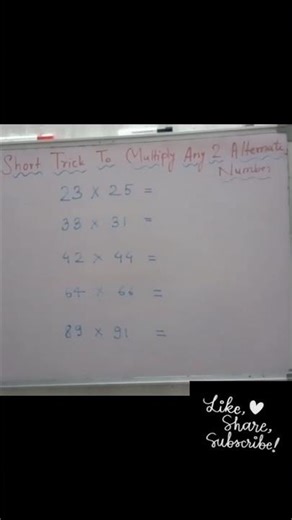 Short Trick To Multiply Any 2 Alternate
Number
23 × 25 =
33 × 31 =
42 × 44 =
64 × 66 =
89 × 91 =
Like,
Share,
Subscribe!